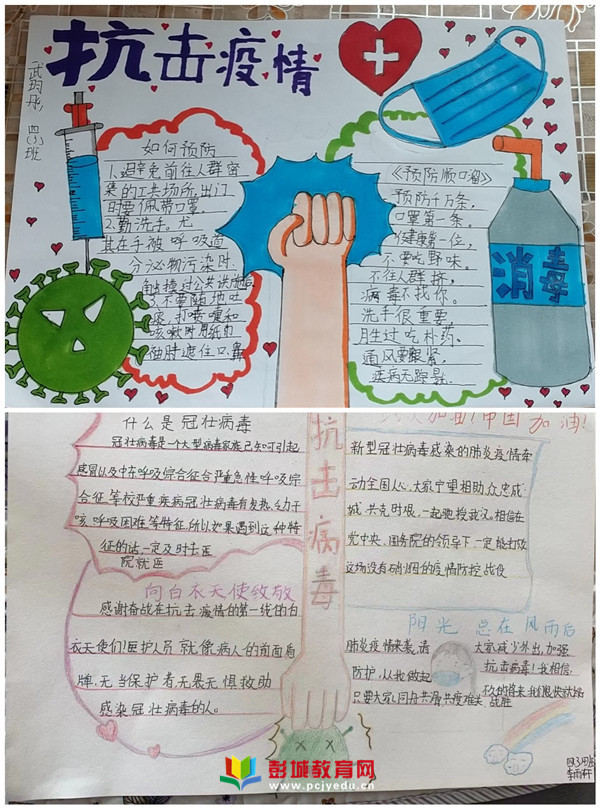 抗击疫情
武玥彤,四(3)班
如何预防
1、避免前往人群密
集的公共场所,出门
时要佩带口罩。
2.勤洗手,尤
其在手被呼吸道
分泌物污染时.
触摸过公共设施后
3.不要随地吐
痰,打喷嚏和
咳嗽时用纸巾
袖肘遮住口鼻
《预防顺口溜》
预防千万条,
口罩第一条。
健康第一位,
不要吃野味。
不往人群挤,
病毒不找你。
洗手很重要
月生过吃补药。
通风要跟紧,
疾病无踪影.
消毒
什么是冠壮病毒
冠壮病毒是一个大型病毒家族已知可引起
感冒以及中东呼吸综合征合严重急性呼吸综
合征等较严重疾病冠壮病毒有发热、乏力干
咳呼吸困难等特征所以如果遇到这种特
征的话,一定及时去医
院就医
向白衣天使致敬
感谢奋战在抗击疫情的第一线的白
衣天使们!医护人员就像病人的前面盾
牌,无当保护者无畏无惧救助
感染冠壮病毒的人。
抗击病毒
加油!中国加油!
新型冠壮病毒感染的肺炎疫情牵
动全国人心,大家守望相助众志成
城,共克时艰,一起驰援武汉,相信在
党中央、国务院的领导下一定能打赢
这场没有硝烟的疫情防控战役
阳光总在风雨后
肺炎疫情来袭,请大家减少外出,加强
防护,从我做起 抗击病毒!我相信,
只要大家同舟共济共渡难关,
战胜
彭城教育网
www.pcjyedu.cn